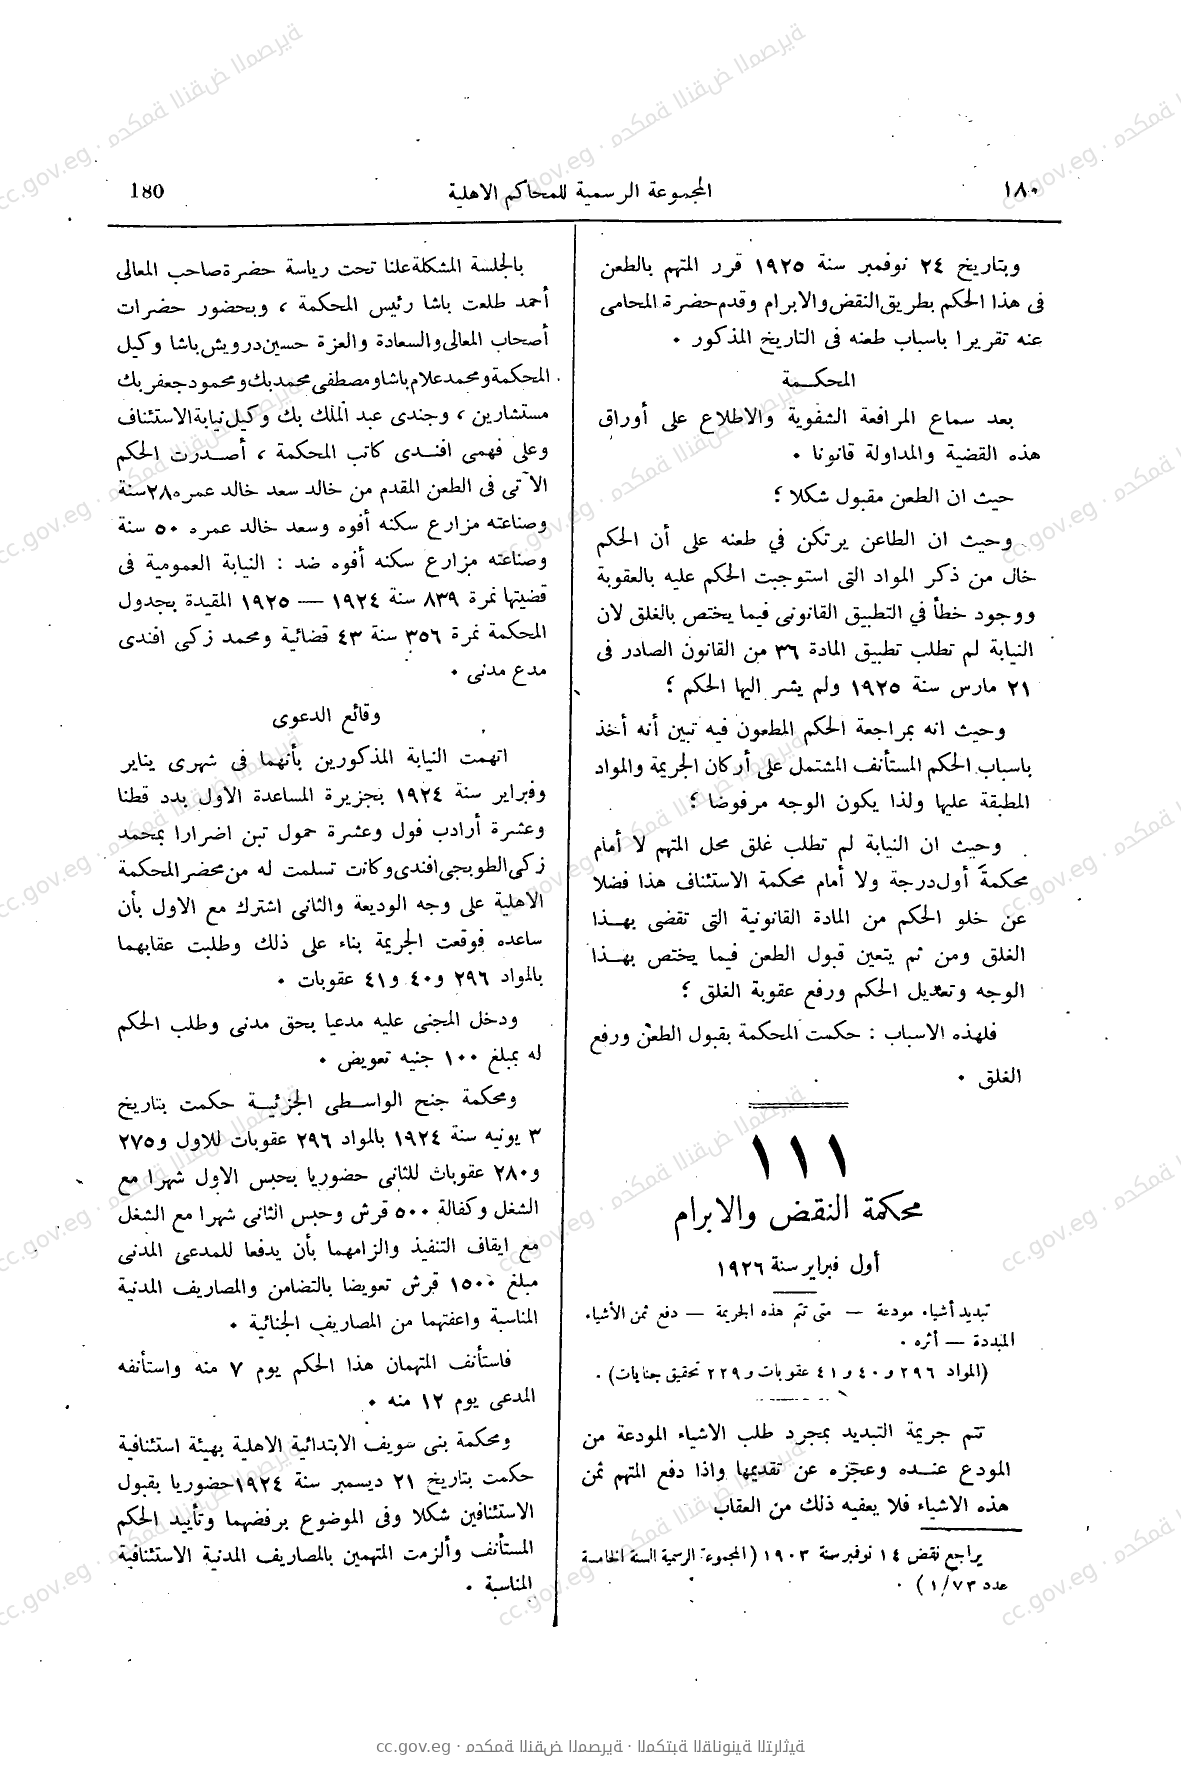 ١٨٠
المجموعة الرسمية للمحاكم الاهلية
180
وبتاريخ ٢٤ نوفمبر سنة ١٩٢٥ قرر المتهم بالطعن
فى هذا الحكم بطريق النقض والابرام وقدم حضرة المحامى
عنه تقريرا باسباب طعنه فى التاريخ المذكور .
المحكمة
بعد سماع المرافعة الشفوية والاطلاع على أوراق
هذه القضية والمداولة قانونا .
حيث ان الطعن مقبول شكلا ؛
وحيث ان الطاعن يرتكن في طعنه على أن الحكم
خال من ذكر المواد التى استوجبت الحكم عليه بالعقوبة
ووجود خطأ في التطبيق القانونى فيما يختص بالغلق لان
النيابة لم تطلب تطبيق المادة ٣٦ من القانون الصادر فى
٢١ مارس سنة ١٩٢٥ ولم يشر اليها الحكم ؛
وحيث انه بمراجعة الحكم المطعون فيه تبين أنه أخذ
باسباب الحكم المستأنف المشتمل على أركان الجريمة والمواد
المطبقة عليها ولذا يكون الوجه مرفوضا ؛
وحيث ان النيابة لم تطلب غلق محل المتهم لا أمام
محكمة أول درجة ولا أمام محكمة الاستئناف هذا فضلا
عن خلو الحكم من المادة القانونية التى تقضى بهذا
الغلق ومن ثم يتعين قبول الطعن فيما يختص بهذا
الوجه وتعديل الحكم ورفع عقوبة الغلق ؛
فلهذه الاسباب : حكمت المحكمة بقبول الطعن ورفع
الغلق .
١١١
محكمة النقض والابرام
أول فبراير سنة ١٩٢٦
تبديد أشياء مودعة — متى تتم هذه الجريمة — دفع ثمن الأشياء
المبددة — أثره .
(المواد ٢٩٦ و ٤٠ و ٤١ عقوبات و ٢٢٩ تحقيق جنايات) .
تتم جريمة التبديد بمجرد طلب الاشياء المودعة من
المودع عنده وعجزه عن تقديمها واذا دفع المتهم ثمن
هذه الاشياء فلا يعفيه ذلك من العقاب
يراجع نقض ١٤ نوفمبر سنة ١٩٠٣ (المجموعة الرسمية السنة الخامسة
عدد ١/٧٣) .
بالجلسة المشكلة علنا تحت رياسة حضرة صاحب المعالى
أحمد طلعت باشا رئيس المحكمة ، وبحضور حضرات
أصحاب المعالى والسعادة والعزة حسين درويش باشا وكيل
المحكمة ومحمد علام باشا ومصطفى محمد بك ومحمود جعفر بك
مستشارين ، وجندى عبد الملك بك وكيل نيابة الاستئناف
وعلى فهمى افندى كاتب المحكمة ، أصدرت الحكم
الآتى فى الطعن المقدم من خالد سعد خالد عمره ٢٨ سنة
وصناعته مزارع سكنه أفوه وسعد خالد عمره ٥٠ سنة
وصناعته مزارع سكنه أفوه ضد : النيابة العمومية فى
قضيتها نمرة ٨٣٩ سنة ١٩٢٤ — ١٩٢٥ المقيدة بجدول
المحكمة نمرة ٣٥٦ سنة ٤٣ قضائية ومحمد زكى افندى
مدع مدنى .
وقائع الدعوى
اتهمت النيابة المذكورين بأنهما فى شهرى يناير
وفبراير سنة ١٩٢٤ بجزيرة المساعدة الاول بدد قطنا
وعشرة أرادب فول وعشرة حمول تبن اضرارا بمحمد
زكى الطوبجى افندى وكانت تسلمت له من محضر المحكمة
الاهلية على وجه الوديعة والثانى اشترك مع الاول بأن
ساعده فوقعت الجريمة بناء على ذلك وطلبت عقابهما
بالمواد ٢٩٦ و ٤٠ و ٤١ عقوبات .
ودخل المجنى عليه مدعيا بحق مدنى وطلب الحكم
له بمبلغ ١٠٠ جنيه تعويض .
ومحكمة جنح الواسطى الجزئية حكمت بتاريخ
٣ يونيه سنة ١٩٢٤ بالمواد ٢٩٦ عقوبات للاول و ٢٧٥
و ٢٨٠ عقوبات للثانى حضوريا بحبس الاول شهرا مع
الشغل وكفالة ٥٠٠ قرش وحبس الثانى شهرا مع الشغل
مع ايقاف التنفيذ والزامهما بأن يدفعا للمدعى المدنى
مبلغ ١٥٠٠ قرش تعويضا بالتضامن والمصاريف المدنية
المناسبة واعفتهما من المصاريف الجنائية .
فاستأنف المتهمان هذا الحكم يوم ٧ منه واستأنفه
المدعى يوم ١٢ منه .
ومحكمة بنى سويف الابتدائية الاهلية بهيئة استئنافية
حكمت بتاريخ ٢١ ديسمبر سنة ١٩٢٤ حضوريا بقبول
الاستئنافين شكلا وفى الموضوع برفضهما وتأييد الحكم
المستأنف وألزمت المتهمين بالمصاريف المدنية الاستئنافية
المناسبة .
cc.gov.eg · محكمة النقض المصرية · المكتبة القانونية التراثية